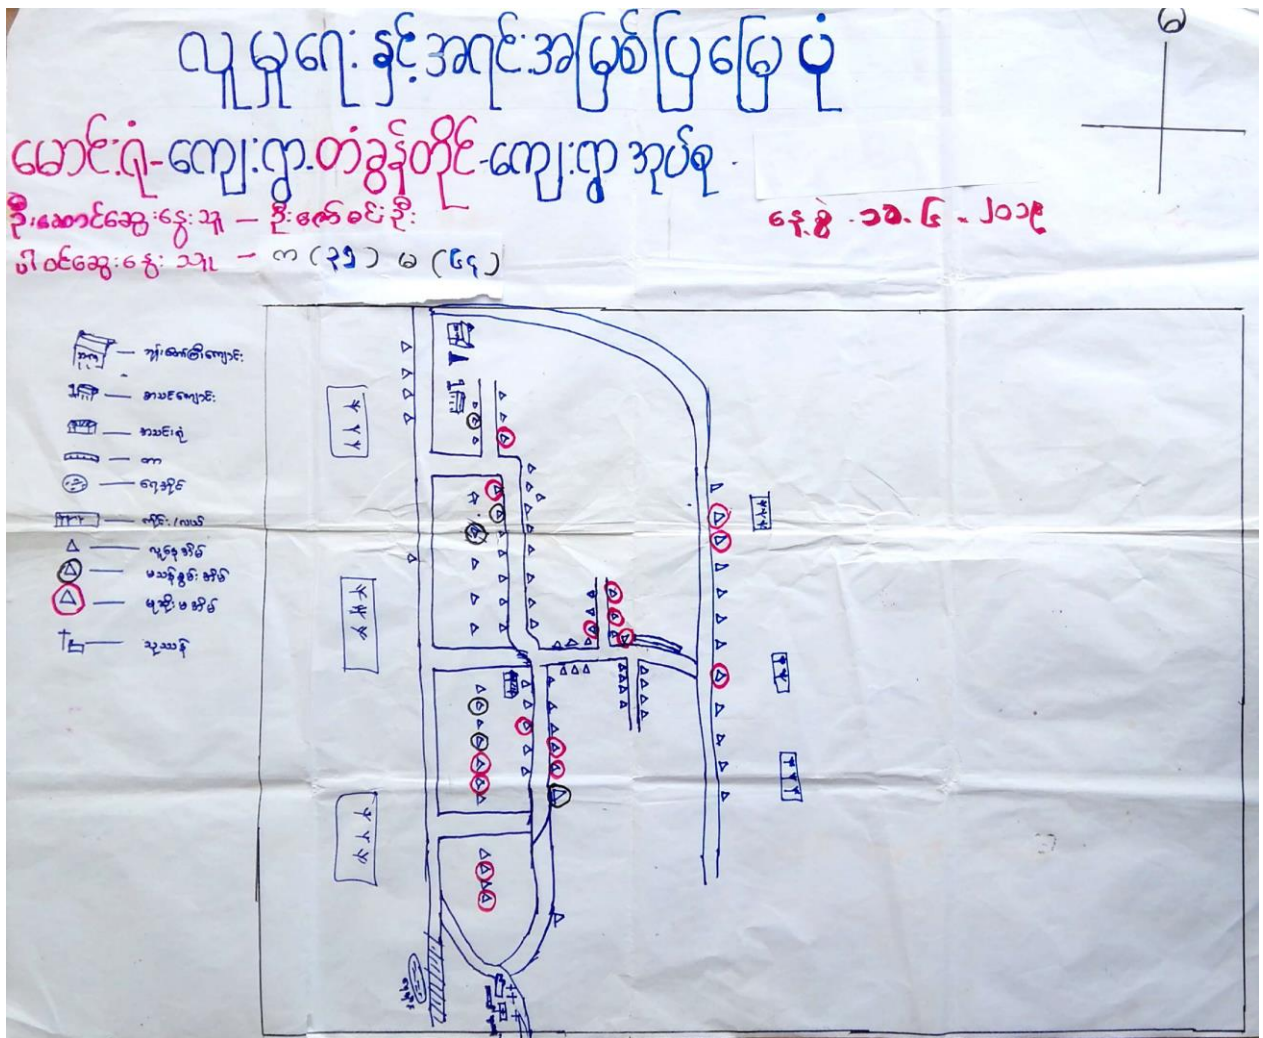 မ
လူမှုရေးနှင့်အရင်းအမြစ်ပြမြေပုံ
မောင်းရုံ-ကျေးရွာ.တံခွန်တိုင်-ကျေးရွာအုပ်စု.
ဦးဆောင်ဆွေးနွေးသူ – ဦးဇော်ဝင်းဦး
နေ့စွဲ . ၁၁. ၆ . ၂၀၁၉
ပါဝင်ဆွေးနွေးသူ – က (၃၅) မ (၆၄)
ဘုန်းတော်ကြီးကျောင်း
စာသင်ကျောင်း
တာ
ရေအိုင်
ကိုင်း/လယ်
လူနေအိမ်
မသန်စွမ်းအိမ်
မုဆိုးမအိမ်
သုဿန်